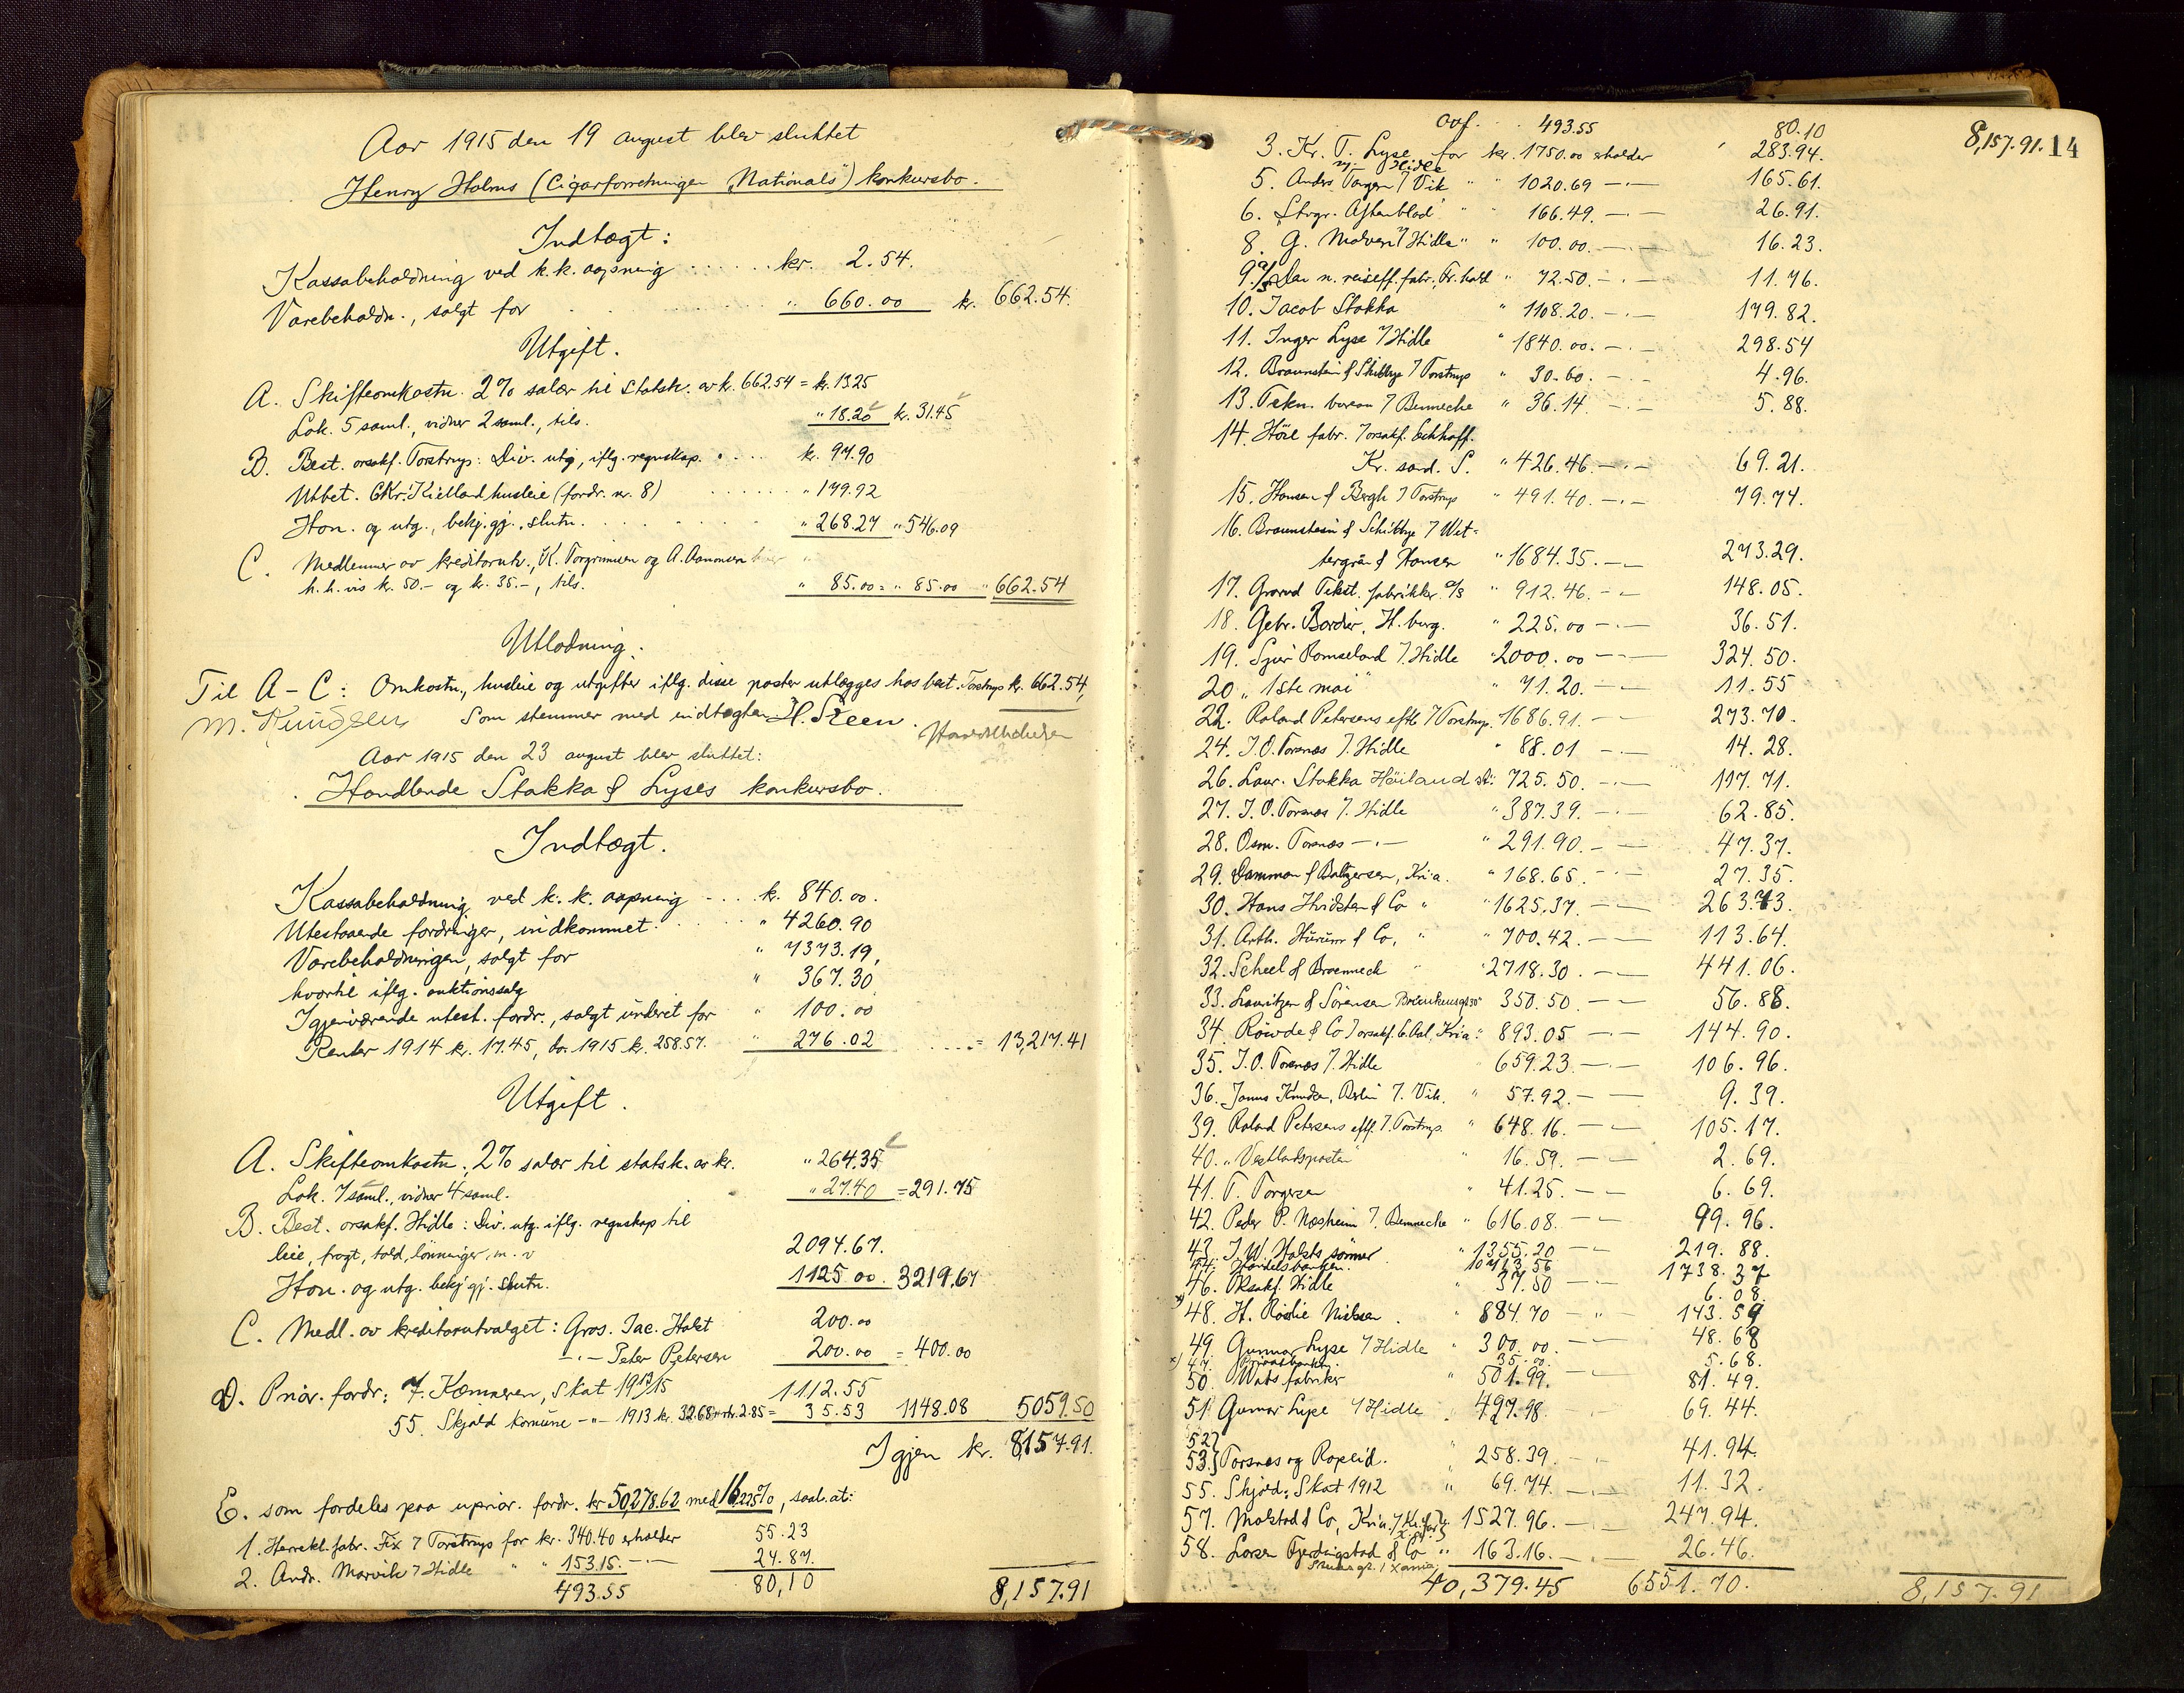 Aar 1915 den 19 august blev sluttet
Henry Holms (Cigarforretningen "Nationals") konkursbo.
Indtægt:
Kassabeholdning ved k.k. aapning ...... kr. 2.54.
Varebeholdn., solgt for " 660.00 kr. 662.54.
Utgift.
A. Skifteomkostn. 2% salær til Statsk. av k. 662.54 = kr. 13.25
Lok. 5 saml., vidner 2 saml., tils. " 18.20 kr. 31.45
B. Best. orsakf. Torstrup: Div. utg, iflg. regnskap. .... kr. 97.90
Utbet. GKr. Kielland husleie (fordr. nr. 8) ...... " 179.92
Hon. og utg., bekj.gj., slutn. ...... " 268.27 " 546.09
C. Medlemmer av kreditorutv., K. Torgrimsen og A. Aamonsen
h.h.vis k. 50.- og kr. 35.-, tils. " 85.00 = " 85.00 " 662.54
Utlodning.
Til A - C: Omkostn., husleie og utgifter iflg. disse poster utlægges hos best. Torstrup kr. 662.54,
M. Knudsen Som stemmer med indtægten H. Steen.
Aar 1915 den 23 august blev sluttet:
Handlende Stakka & Lyses konkursbo.
Indtægt.
Kassabeholdning ved k. k. aapning .... kr. 840.00.
Utestaaende fordringer, indkommet. " 4260.90
Varebeholdningen, solgt for " 7373.19,
hvortil iflg. auktionssalg " 367.30
Igjenværende utest. fordr., solgt underet for " 100.00
Renter 1914 kr. 17.45, do. 1915 k. 258.57. " 276.02 .... = 13,217.41
Utgift.
A. Skifteomkostn. 2% salær til statsk. av kr. " 264.35
Lok. 7 saml., vidner 4 saml. " 27.40 = 291.75
B. Best. orsakf. Hidle: Div. utg. iflg. regnskap til
leie, fragt, told, lønninger, m. v 2094.67.
Hon. og utg. bekj gj. slutn. 1125.00. 3219.67
C. Medl. av kreditorutvalget: Gros. Jac. Holst 200.00
-"- Peter Petersen 200.00 = 400.00
D. Prior. fordr: 7. Kæmneren, Skat 1914/15 1112.55
55. Skjold komune -"- 1913 kr. 32.68 + rtr. 2.85 = 35.53 1148.08 5059.50
Igjen kr. 8157.91.
E. som fordeles paa uprior. fordr. kr 50,278.62 med 16,225%, saal. at:
1. Herrekl. fabr. Fix / Torstrup for kr. 340.40 erholder 55.23
2. Andr. Marvik / Hidle " " 153.15. -"- 24.87.
493.55 80,10 8,157.91
Ovf. 493.55 80.10 8,157.91. 14
3. Kr. T. Lyse for kr. 1750.00 erholder 283.94.
v. Hidle
5. Anders Torgen / Vik " " 1020.69 -"- 165.61.
6. "Stvgr. Aftenblad" " " 166.49. -"- 26.91.
8. G. Malvari / Hidle " " 100.00. -"- 16.23.
9. a/s Den n. reiseff. fabr., Fr.hald " 72.50. -"- 11.76.
10. Jacob Stakka " 1108.20. -"- 179.82.
11. Inger Lyse / Hidle " 1840.00. -"- 298.54
12. Braunstein & Skibbye / Torstrup " 30.60. -"- 4.96.
13. Tekn. bureau / Benneche " 36.14 -"- 5.88.
14. Höie fabr. / orsakf. Eckhoff.
Kr. sand. S. " 426.46. -"- 69.21.
15. Hansen & Bergh / Torstrup " 491.40. -"- 79.74.
16. Braunstein & Schibbye / Wet-
tergrän & Hansen " 1684.35. -"- 273.29.
17. Grorud Tekst. fabrikker a/s " 912.46. -"- 148.05.
18. Gebr. Bordier, H.burg. " 225.00 -"- 36.51.
19. Sjur Romseland / Hidle " 2000.00 -"- 324.50.
20. "1ste mai" " 71.20. -"- 11.55
22. Roland Petersens eftf / Torstrup. 1686.91. -"- 273.70.
24. J.O. Torsnæs / Hidle " 88.01 -"- 14.28.
26. Laur. Stakka Høiland st: 725.50. -"- 117.71.
27. J.O. Torsnæs / Hidle " 387.39. -"- 62.85.
28. Osm. Torsnæs -"- " 291.90. -"- 47.37.
29. Dammon & Baltzersen, Kr.a. " 168.65. -"- 27.35.
30. Hans Hvidsten & Co " " 1625.37. -"- 263.73.
31. Arth. Hurum & Co, " " 700.42. -"- 113.64.
32. Scheel & Broemeck " " 2718.30. -"- 441.06.
33. Lauritzen & Sörensen 350.50. -"- 56.88.
34. Røwde & Co / orsakf. E. Aal, Kr.a: " 893.05 -"- 144.90.
35. J.O. Torsnæs / Hidle 659.23. -"- 106.96.
36. Janus Knudsen, Berlin / Vik. " 57.92. -"- 9.39.
39. Roland Petersens eftf. / Torstrup. " 648.16. -"- 105.17.
40. "Vestlandsposten" " 16.59. -"- 2.69.
41. T. Torgersen " 41.25. -"- 6.69.
42. Peder P. Næsheim / Benneche " 616.08. -"- 99.96.
43. J.W. Holsts sønner " 1355.20 -"- 219.88.
44. Handelsbanken. 10713.56 1738.37
46. Orsakf. Hidle " 37.50 -"- 6.08.
x) 48. H. Roslie Nielsen " 884.70 -"- 143.59
49 Gunnar Lyse / Hidle " 300.00. -"- 48.68
x) 47. Privatbanken. 35.00. 5.68.
50. Wats fabriker " 501.99. -"- 81.49.
51. Gunnar Lyse / Hidle " 427.98. -"- 69.44.
52}
53} Torsnæs og Ropeid. " 258.39. -"- 41.94.
55. Skjold: Skat 1912 " 69.74. -"- 11.32.
57. Molstad & Co, Kr.a. 1527.96. -"- 247.94.
58. Lorsen Fjerdingstad & Co " 163.16. -"- 26.46.
40,379.45 6551.70. 8,157.91